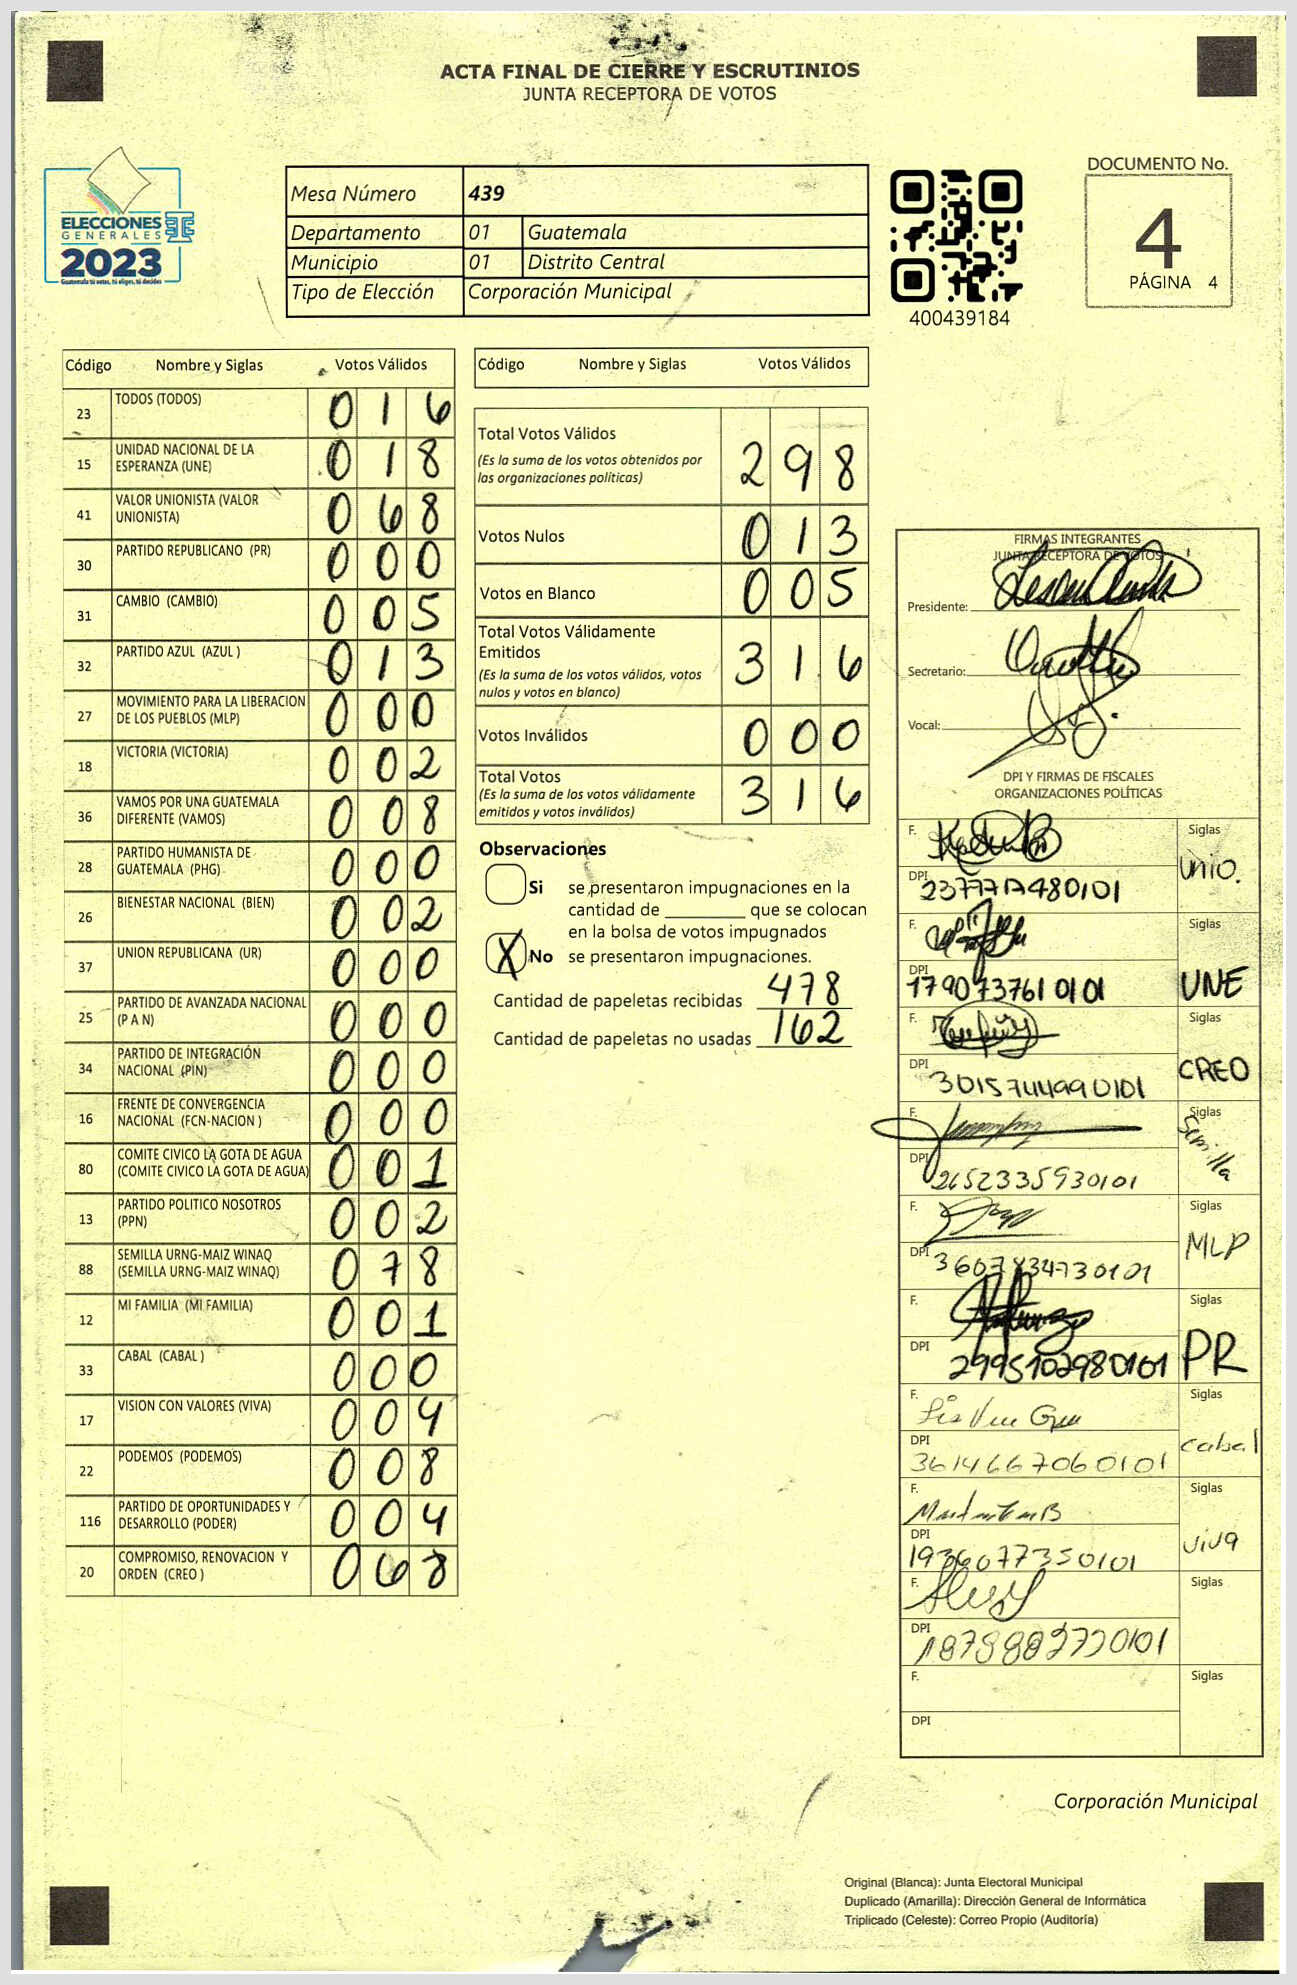 ACTA FINAL DE CIERRE Y ESCRUTINIOS
JUNTA RECEPTORA DE VOTOS
ELECCIONES
GENERALES
TSE
2023
Guatemala tú votas, tú eliges, tú decides
Mesa Número 439
Departamento 01 Guatemala
Municipio 01 Distrito Central
Tipo de Elección Corporación Municipal
400439184
DOCUMENTO No.
4
PÁGINA 4
Código Nombre y Siglas Votos Válidos
23 TODOS (TODOS) 0 1 6
15 UNIDAD NACIONAL DE LA
ESPERANZA (UNE) 0 1 8
41 VALOR UNIONISTA (VALOR
UNIONISTA) 0 6 8
30 PARTIDO REPUBLICANO (PR) 0 0 0
31 CAMBIO (CAMBIO) 0 0 5
32 PARTIDO AZUL (AZUL ) 0 1 3
27 MOVIMIENTO PARA LA LIBERACION
DE LOS PUEBLOS (MLP) 0 0 0
18 VICTORIA (VICTORIA) 0 0 2
36 VAMOS POR UNA GUATEMALA
DIFERENTE (VAMOS) 0 0 8
28 PARTIDO HUMANISTA DE
GUATEMALA (PHG) 0 0 0
26 BIENESTAR NACIONAL (BIEN) 0 0 2
37 UNION REPUBLICANA (UR) 0 0 0
25 PARTIDO DE AVANZADA NACIONAL
(P A N) 0 0 0
34 PARTIDO DE INTEGRACIÓN
NACIONAL (PIN) 0 0 0
16 FRENTE DE CONVERGENCIA
NACIONAL (FCN-NACION ) 0 0 0
80 COMITE CIVICO LA GOTA DE AGUA
(COMITE CIVICO LA GOTA DE AGUA) 0 0 1
13 PARTIDO POLITICO NOSOTROS
(PPN) 0 0 2
88 SEMILLA URNG-MAIZ WINAQ
(SEMILLA URNG-MAIZ WINAQ) 0 7 8
12 MI FAMILIA (MI FAMILIA) 0 0 1
33 CABAL (CABAL ) 0 0 0
17 VISION CON VALORES (VIVA) 0 0 4
22 PODEMOS (PODEMOS) 0 0 8
116 PARTIDO DE OPORTUNIDADES Y
DESARROLLO (PODER) 0 0 4
20 COMPROMISO, RENOVACION Y
ORDEN (CREO ) 0 6 8
Código Nombre y Siglas Votos Válidos
Total Votos Válidos
(Es la suma de los votos obtenidos por
las organizaciones políticas) 2 9 8
Votos Nulos 0 1 3
Votos en Blanco 0 0 5
Total Votos Válidamente
Emitidos
(Es la suma de los votos válidos, votos
nulos y votos en blanco) 3 1 6
Votos Inválidos 0 0 0
Total Votos
(Es la suma de los votos válidamente
emitidos y votos inválidos) 3 1 6
Observaciones
Si se presentaron impugnaciones en la
cantidad de ________ que se colocan
en la bolsa de votos impugnados
X No se presentaron impugnaciones.
Cantidad de papeletas recibidas 478
Cantidad de papeletas no usadas 162
FIRMAS INTEGRANTES
JUNTA RECEPTORA DE VOTOS
Presidente:
Secretario:
Vocal:
DPI Y FIRMAS DE FISCALES
ORGANIZACIONES POLÍTICAS
F. Siglas
Unio.
DPI
F. Siglas
UNE
DPI 1790737610101
F. Siglas
CREO
DPI 3015744990101
F. Siglas
Semilla
DPI 2652335930101
F. Siglas
MLP
DPI 3607834730101
F. Siglas
PR
DPI 2995102980101
F. Siglas
cabal
DPI 3614667060101
F. Siglas
viva
DPI 1936077350101
F. Siglas
DPI
F. Siglas
DPI
Corporación Municipal
Original (Blanca): Junta Electoral Municipal
Duplicado (Amarilla): Dirección General de Informática
Triplicado (Celeste): Correo Propio (Auditoría)